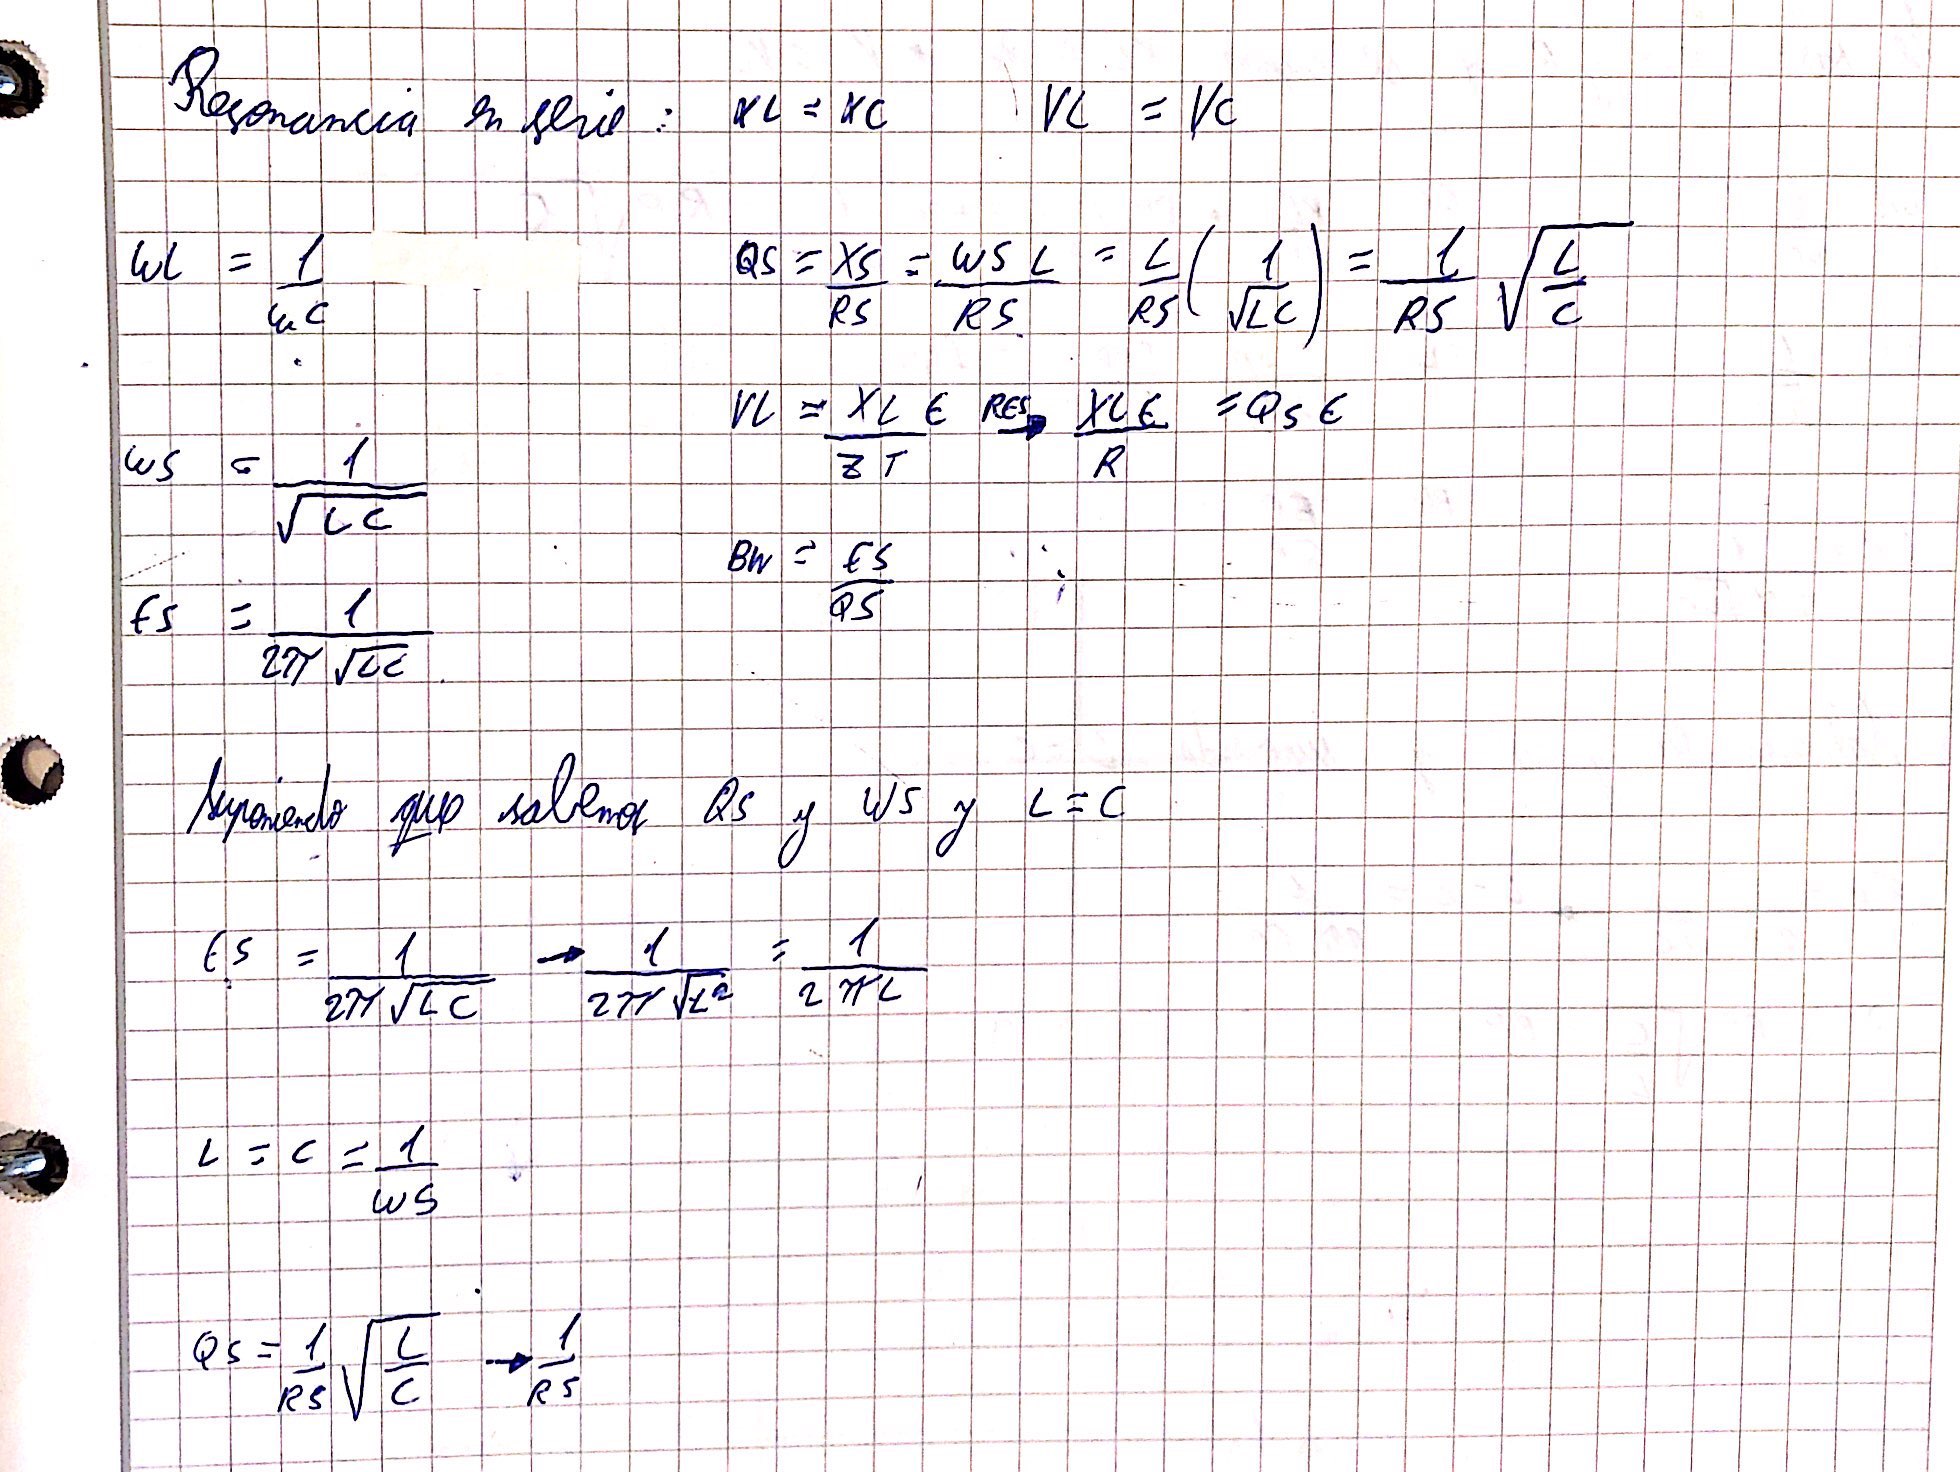 Resonancia en serie : XL = XC VL = VC
WL = 1/WC
QS = XS/RS = WS L/RS = L/RS (1/√LC) = 1/RS √L/C
VL = XL E/ZT RES→ XL E/R = QS E
WS = 1/√LC
BW = FS/QS
FS = 1/2π√LC
Suponiendo que sabemos QS y WS y L = C
FS = 1/2π√LC → 1/2π√L² = 1/2πL
L = C = 1/WS
QS = 1/RS √L/C → 1/RS